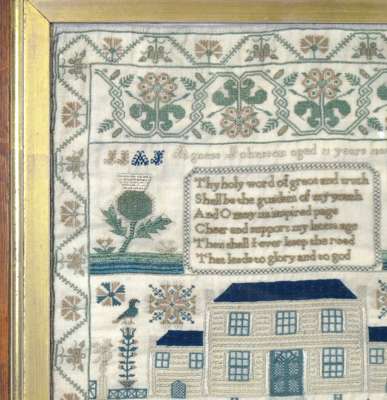 JJ AJ
Agness Johnston aged 11 years
Thy holy word of grace and truth
Shall be the guardian of my youth
And O may its inspired page
Cheer and support my latest age
Then shall I ever keep the road
That leads to glory and to god